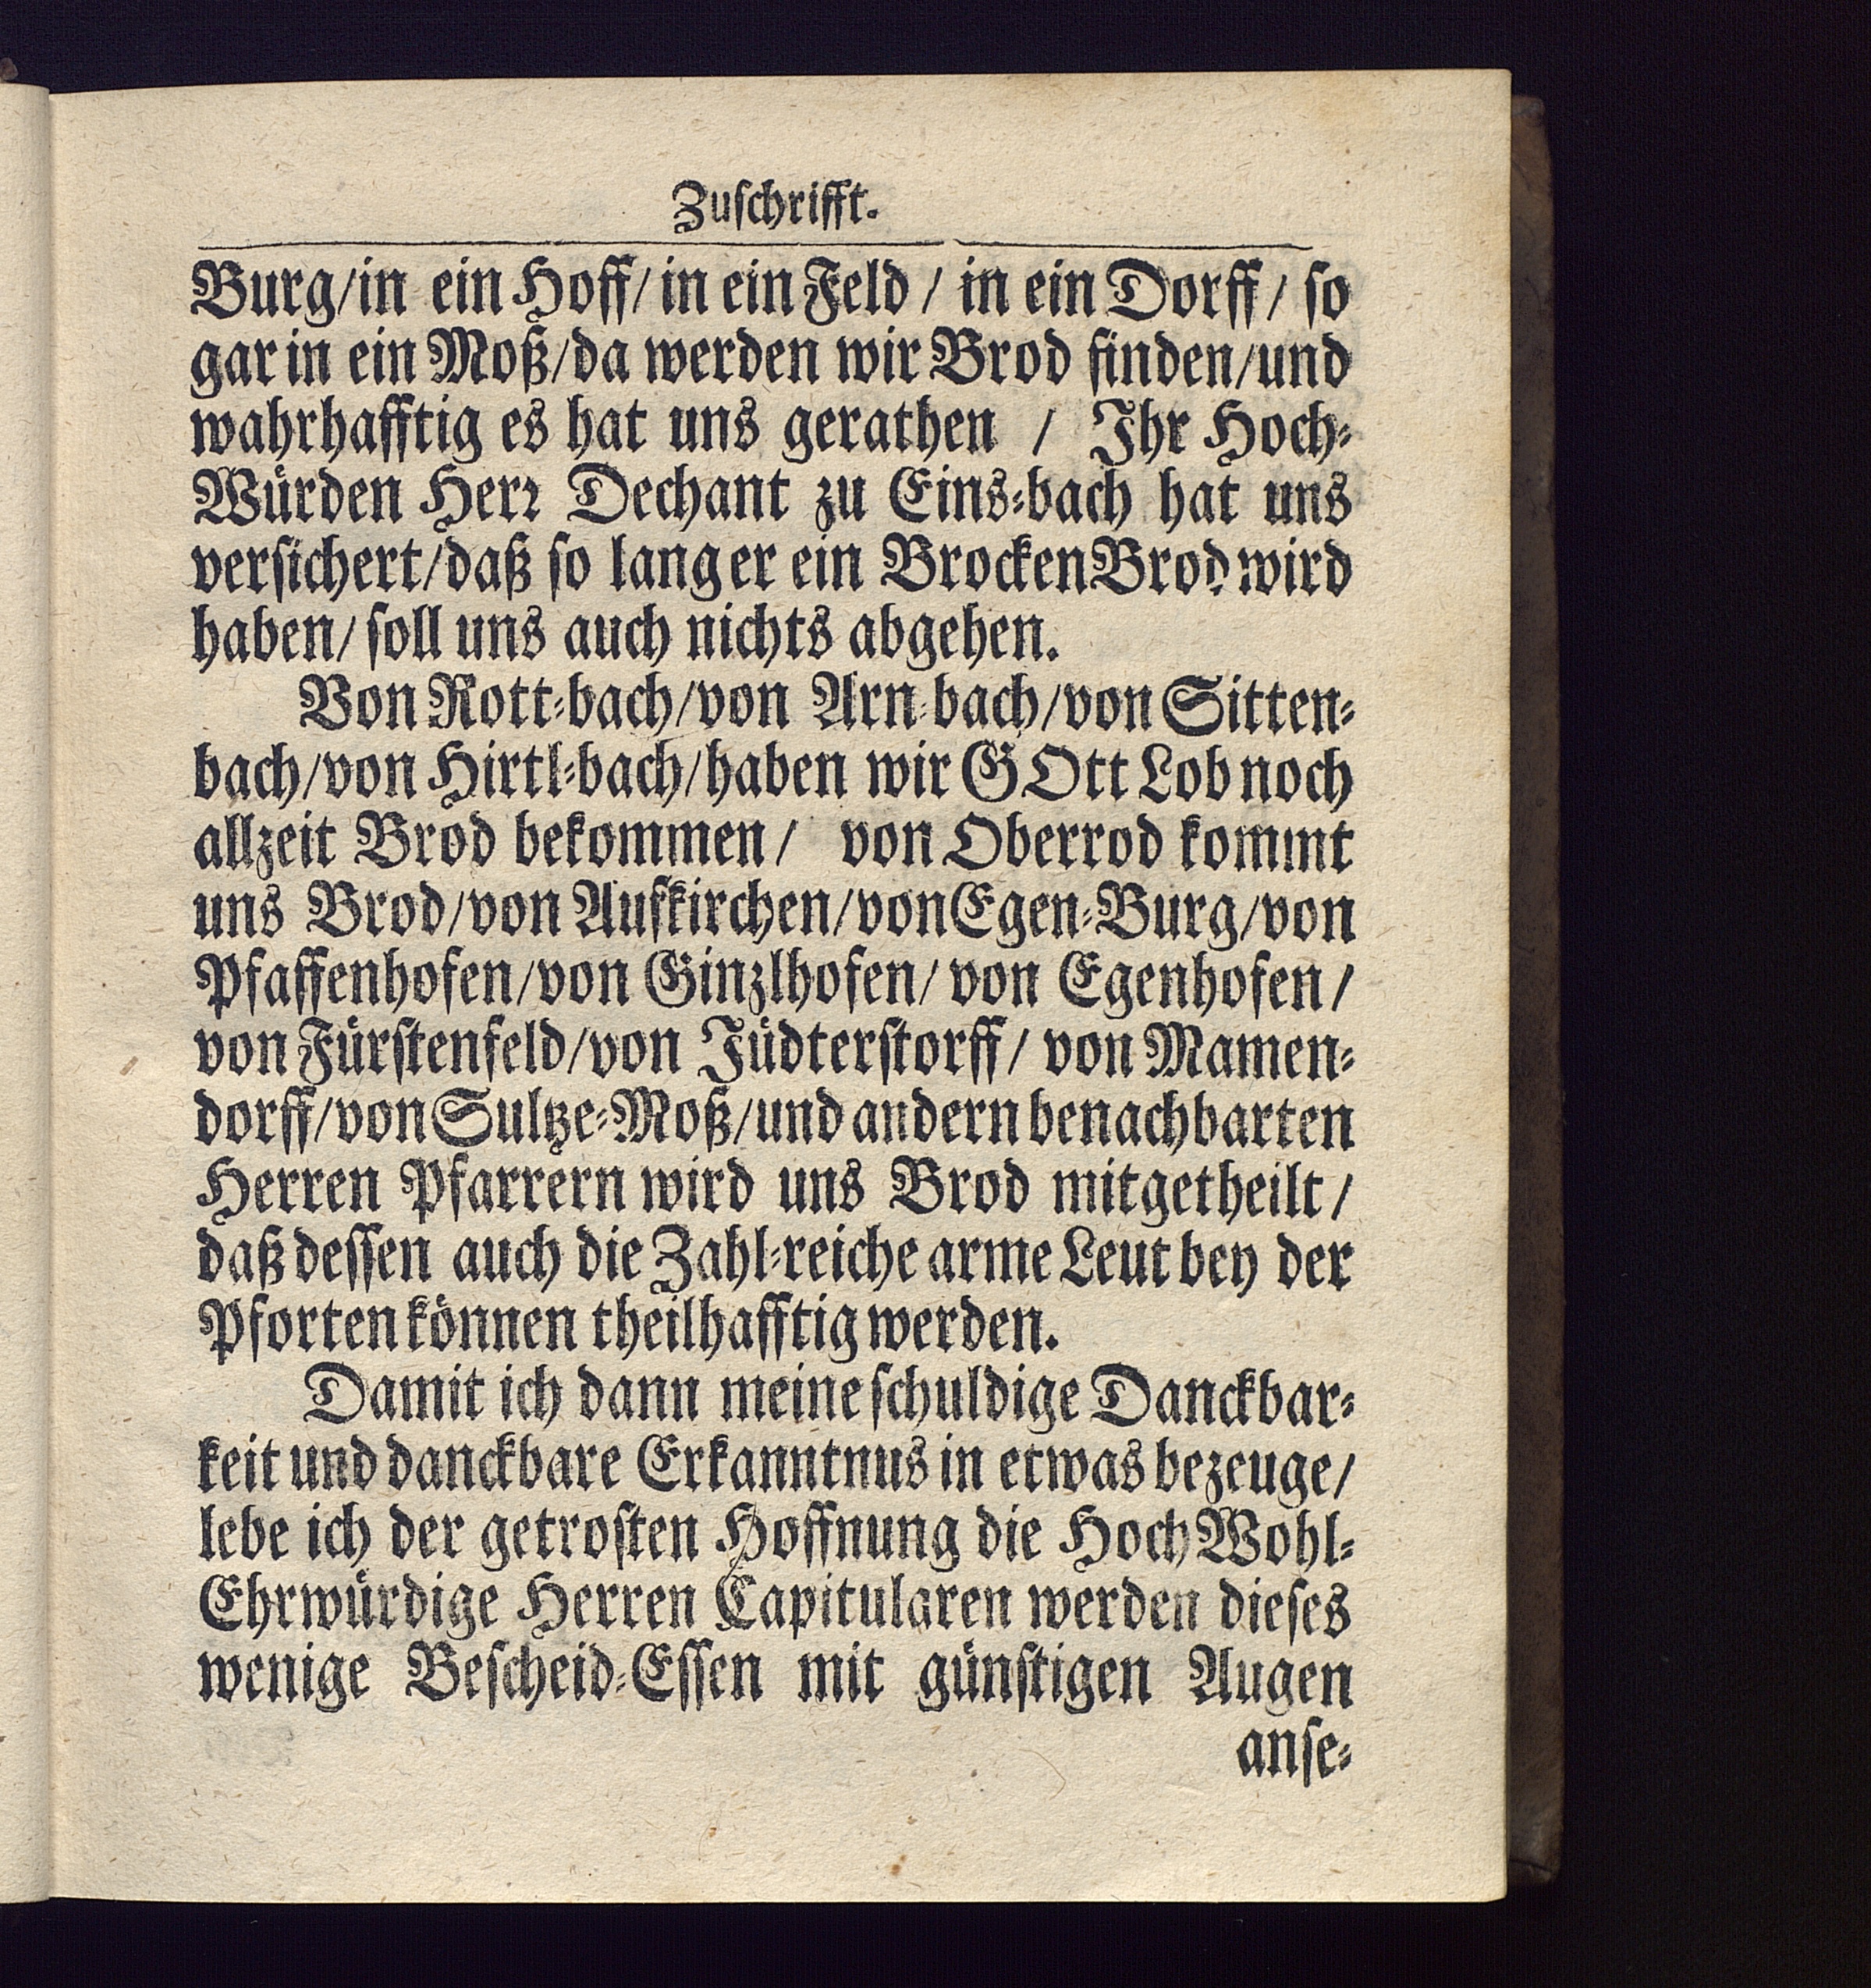 Zuschrifft.
Burg/in ein Hoff/in ein Feld / in ein Dorff/ so
gar in ein Moß/da werden wir Brod finden/und
wahrhafftig es hat uns gerathen / Ihr Hoch-
Würden Herr Dechant zu Eins-bach hat uns
versichert/daß so lang er ein Brocken Brod wird
haben/ soll uns auch nichts abgehen.
Von Rott-bach/von Arn-bach/von Sitten-
bach/von Hirtl-bach/haben wir GOtt Lob noch
allzeit Brod bekommen/ von Oberrod kommt
uns Brod/von Aufkirchen/von Egen-Burg/von
Pfaffenhofen/von Ginzlhofen/ von Egenhofen/
von Fürstenfeld/von Jüdterstorff/ von Mamen-
dorff/von Sultze-Moß/und andern benachbarten
Herren Pfarrern wird uns Brod mitgetheilt/
daß dessen auch die Zahl-reiche arme Leut bey der
Pforten können theilhafftig werden.
Damit ich dann meine schuldige Danckbar-
keit und danckbare Erkanntnus in etwas bezeuge/
lebe ich der getrosten Hoffnung die Hoch Wohl-
Ehrwürdige Herren Capitularen werden dieses
wenige Bescheid-Essen mit günstigen Augen
anse-